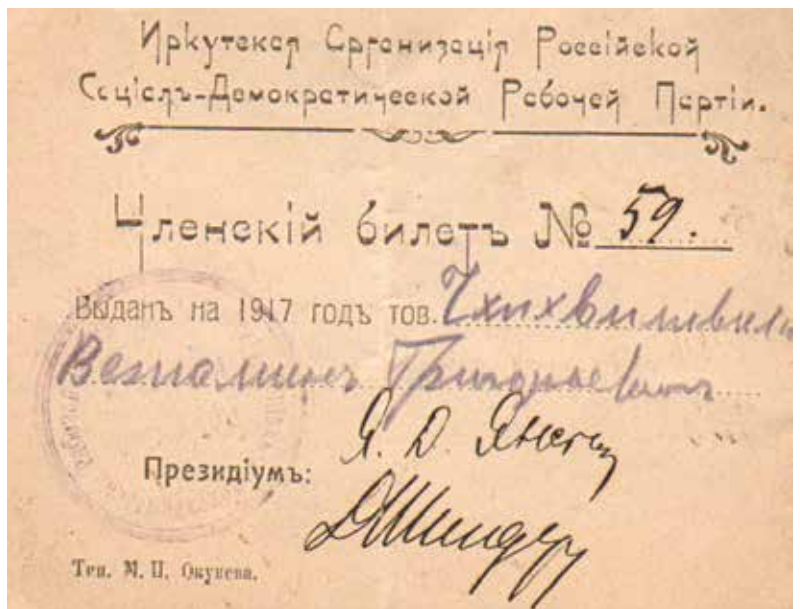 Иркутская Организація Россійской
Соціалъ-Демократической Рабочей Партіи.
Членскій билетъ № 59.
Выданъ на 1917 годъ тов. Чхиквишвили
Веніаминъ Григорьевичъ
Я. Д. Янсон
Президіумъ:
Тип. М. П. Окунева.